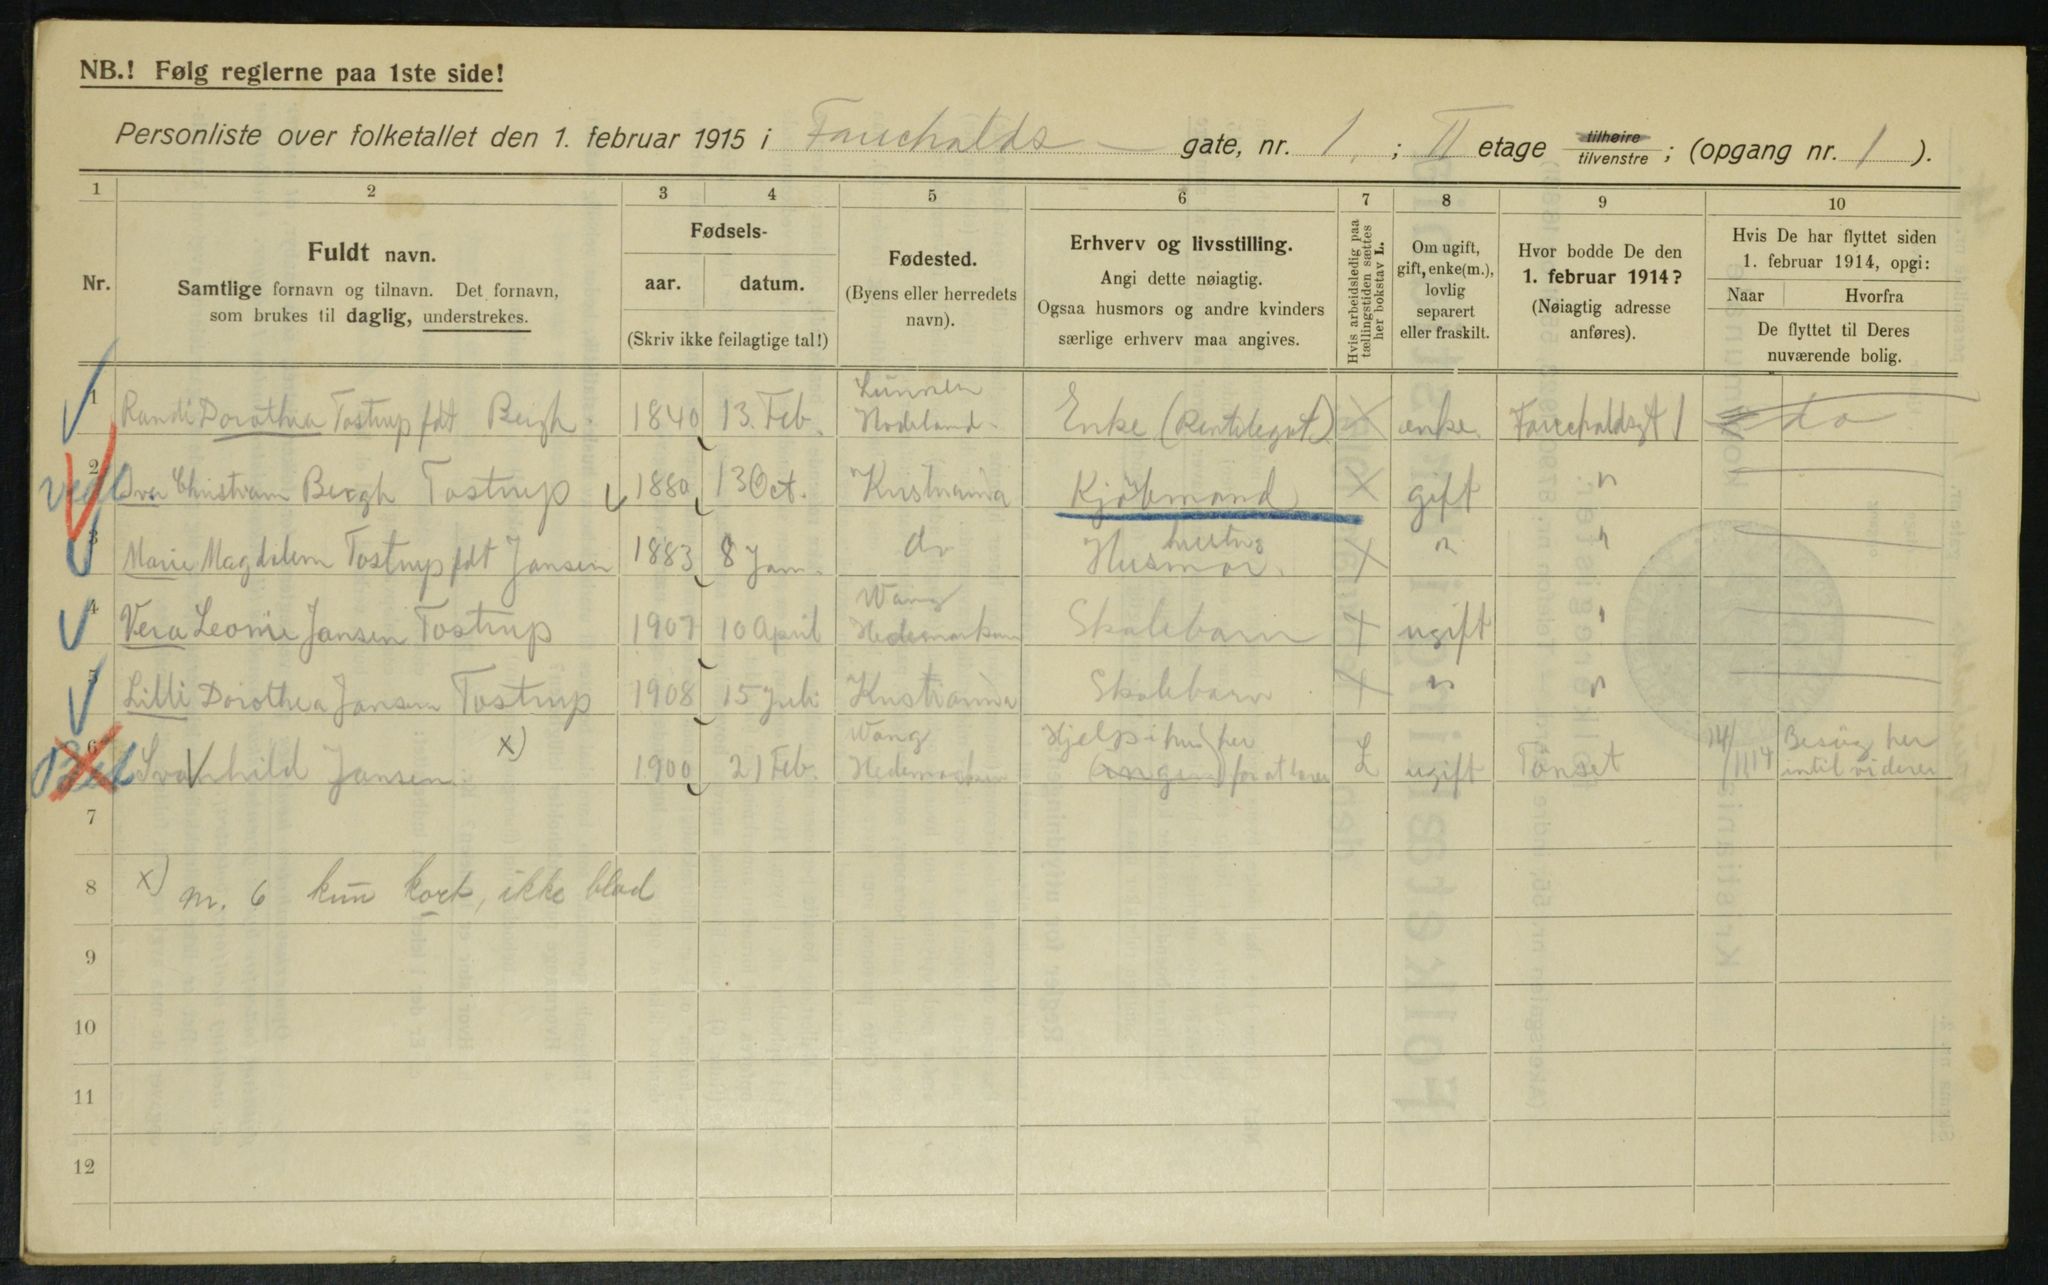 NB.! Følg reglerne paa 1ste side!
Personliste over folketallet den 1. februar 1915 i Fauchalds gate, nr. 1. ; II etage tilhøire tilvenstre ; (opgang nr. 1 ).
1 2 3 4 5 6 7 8 9 10
Nr.
Fuldt navn.
Samtlige fornavn og tilnavn. Det fornavn,
som brukes til daglig, understrekes.
Fødsels-
aar. datum.
(Skriv ikke feilagtige tal!)
Fødested.
(Byens eller herredets
navn).
Erhverv og livsstilling.
Angi dette nøiagtig.
Ogsaa husmors og andre kvinders
særlige erhverv maa angives.
Hvis arbeidsledig paa
tællingstiden sættes
her bokstav L.
Om ugift,
gift, enke(m.),
lovlig
separert
eller fraskilt.
Hvor bodde De den
1. februar 1914?
(Nøiagtig adresse
anføres).
Hvis De har flyttet siden
1. februar 1914, opgi:
Naar Hvorfra
De flyttet til Deres
nuværende bolig.
1 Randi Dorothea Tostrup fdt Bergh 1840 13. Feb. enke Fauchaldsgt 1 do
Enke
2 Christian Bergh Tostrup 1880 13 Oct. Kristiania Kjøbmand gift "
3 Marie Magdalena Tostrup fdt Jansen 1883 8 Jan. do Husmor. " "
4 Vera Leonie Jansen Tostrup 1907 10 April Wang Hedemarken Skolebarn ugift "
5 Lilli Dorothea Jansen Tostrup 1908 15 Juli Kristiania Skolebarn " "
6 Svanhild Jansen x) 1900 21 Feb. Wang Hedemarken Hjelp i hus her for at lære L ugift Tønset 14/1 14 Besøg her
intil videre
7
8 x) nr. 6 kun kort, ikke blad
9
10
11
12